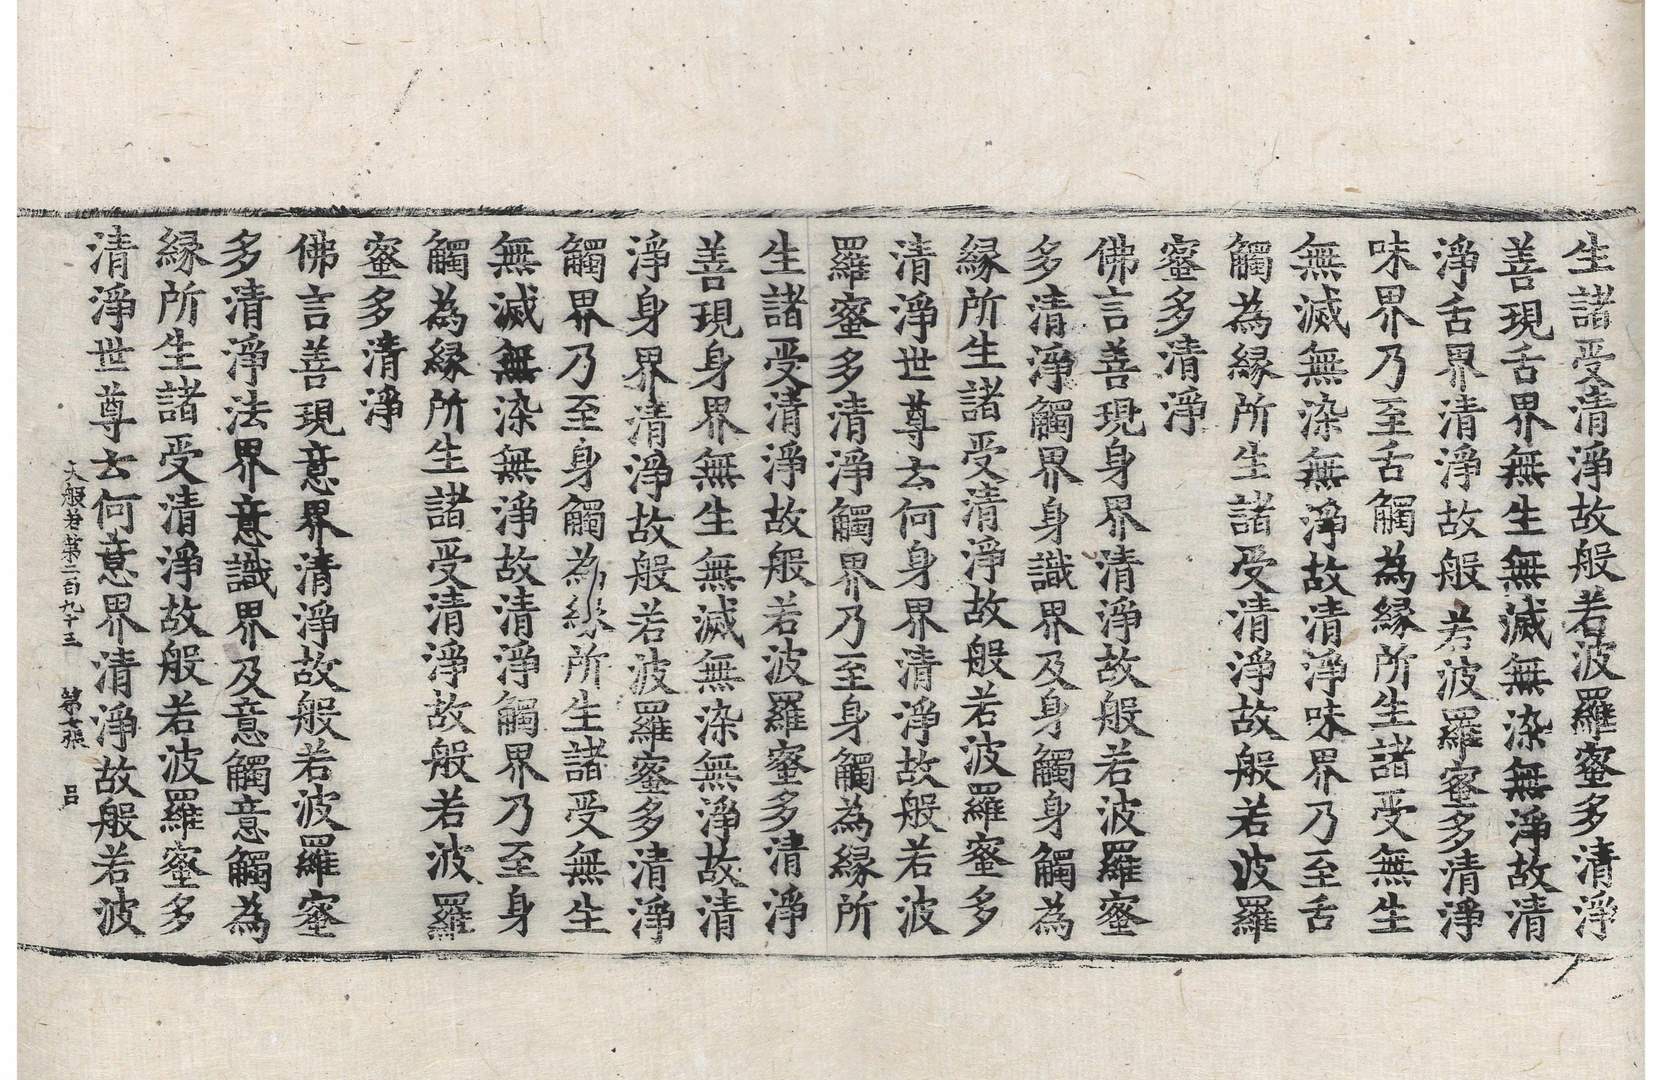 生諸受清淨故般若波羅蜜多清淨
善現舌界無生無滅無染無淨故清
淨舌界清淨故般若波羅蜜多清淨
味界乃至舌觸為緣所生諸受無生
無滅無染無淨故清淨味界乃至舌
觸為緣所生諸受清淨故般若波羅
蜜多清淨
佛言善現身界清淨故般若波羅蜜
多清淨觸界身識界及身觸身觸為
緣所生諸受清淨故般若波羅蜜多
清淨世尊云何身界清淨故般若波
羅蜜多清淨觸界乃至身觸為緣所
生諸受清淨故般若波羅蜜多清淨
善現身界無生無滅無染無淨故清
淨身界清淨故般若波羅蜜多清淨
觸界乃至身觸為緣所生諸受無生
無滅無染無淨故清淨觸界乃至身
觸為緣所生諸受清淨故般若波羅
蜜多清淨
佛言善現意界清淨故般若波羅蜜
多清淨法界意識界及意觸意觸為
緣所生諸受清淨故般若波羅蜜多
清淨世尊云何意界清淨故般若波
大般若第二百九十三 第 張 呂